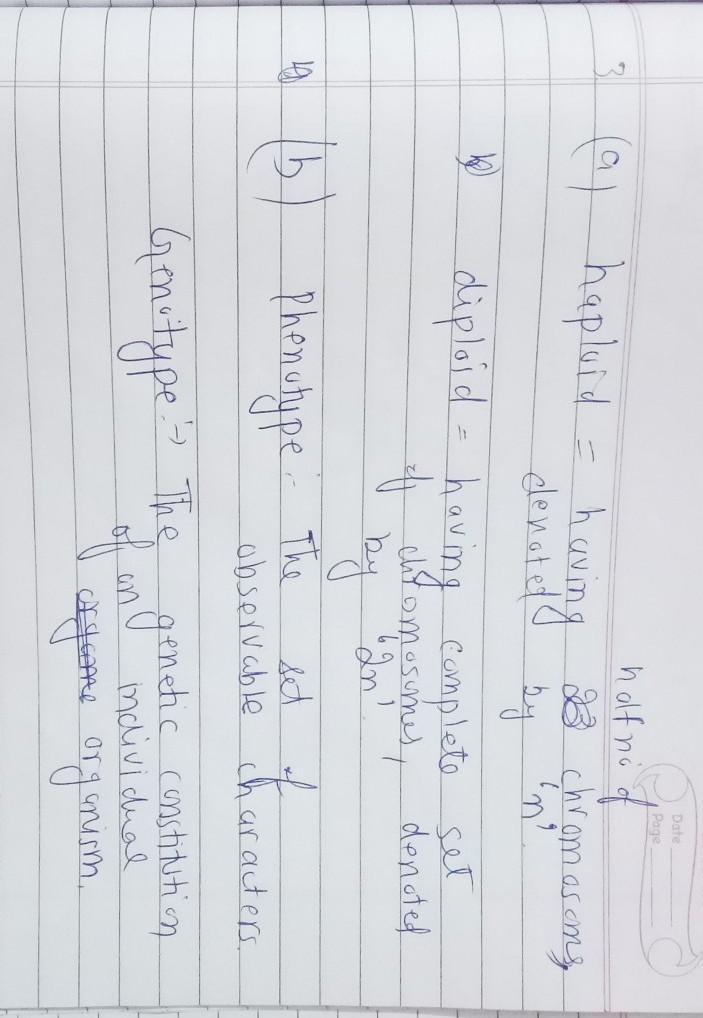 Date
Page
half no of
3 (a) haploid = having chromosoms,
denoted by 'n'.
diploid = having complete set
of chromosomes, denoted
by '2n'.
(b) Phenotype :- The set of
observable characters.
Genotype :-> The genetic constitution
of an individual
of organism.